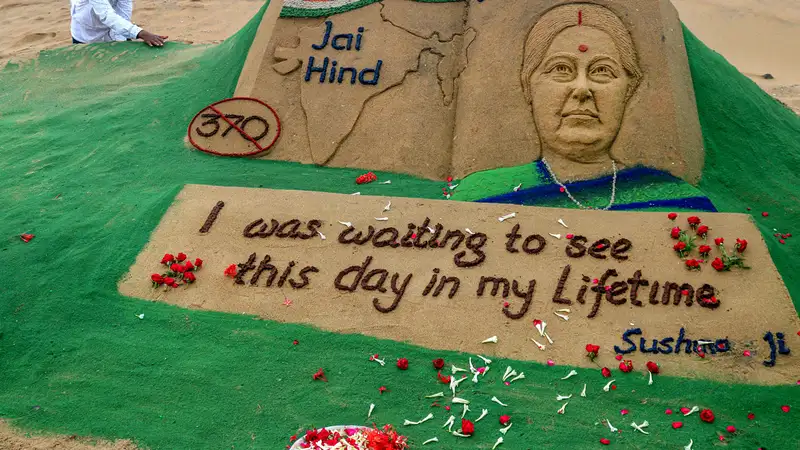 Jai
Hind
370
I was waiting to see
this day in my Lifetime
Sushma Ji